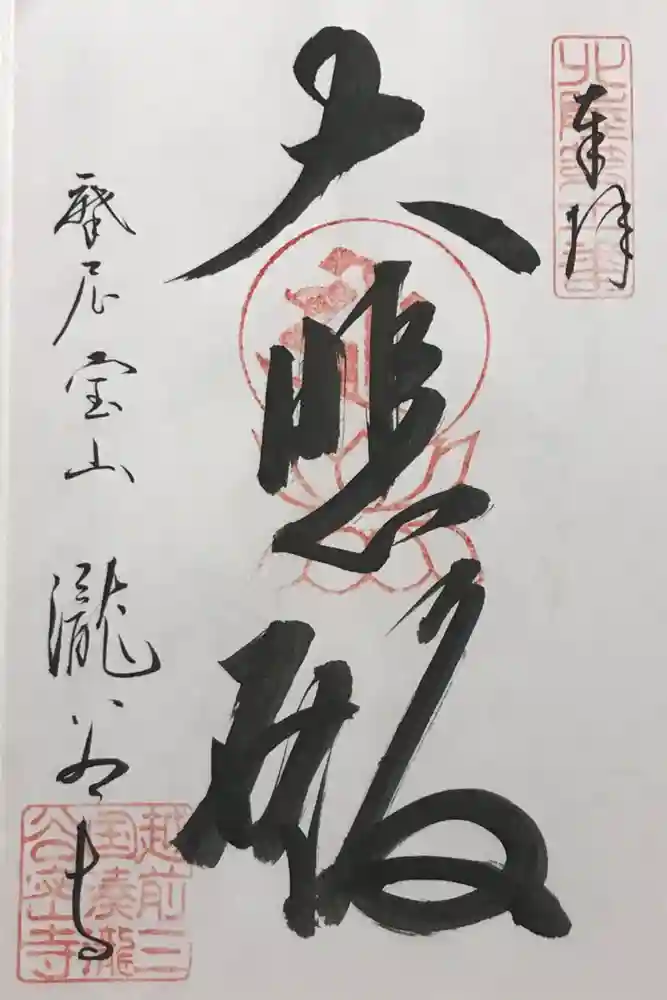 奉拝
大悲殿
摩尼宝山 瀧谷寺
越前三
国湊瀧
谷 寺